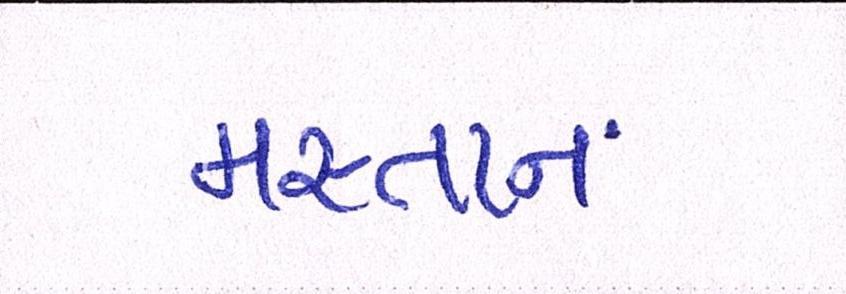 મસ્તાનં